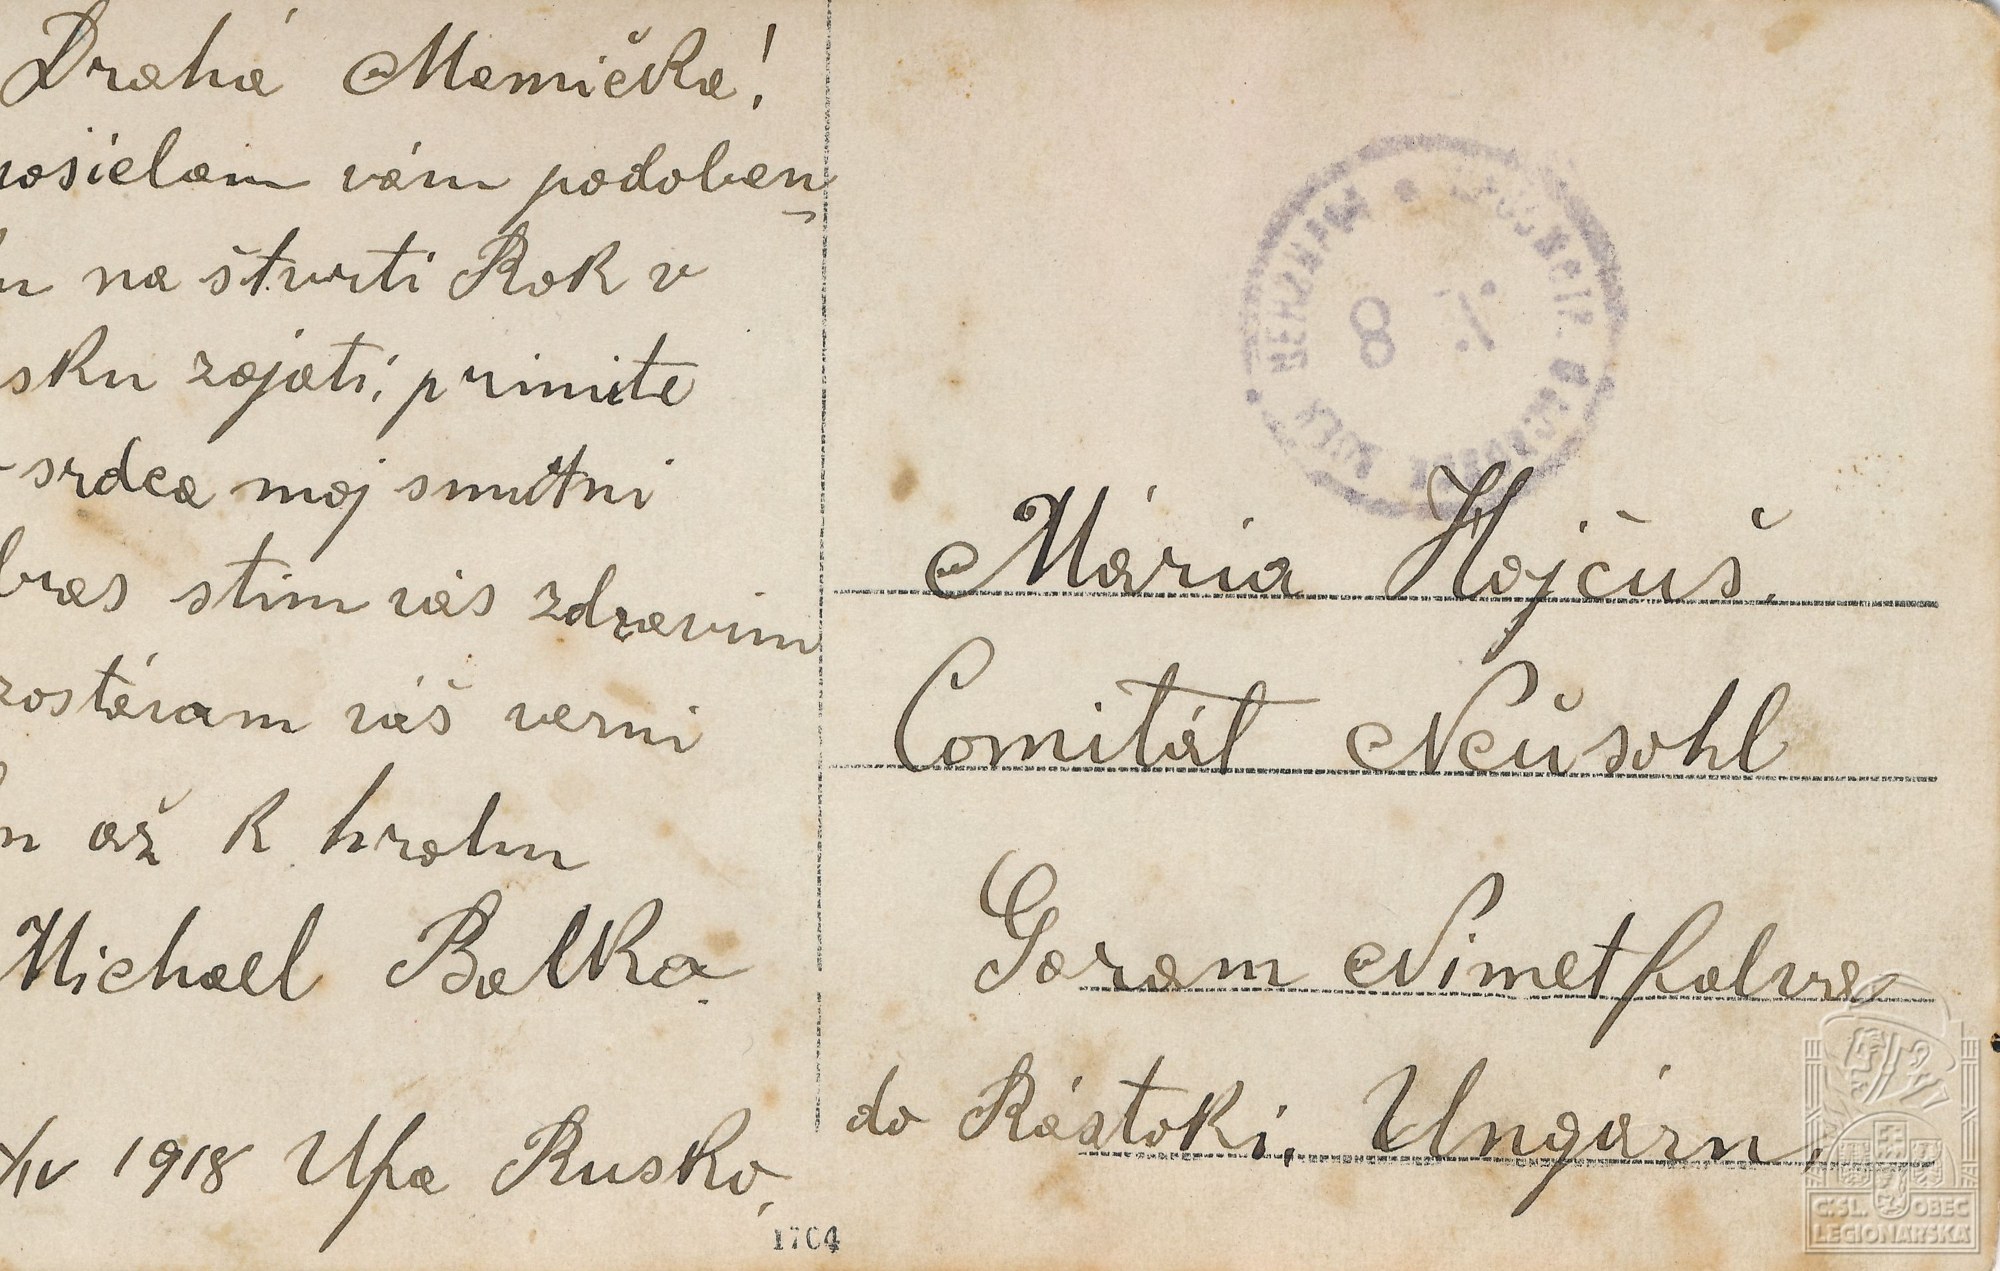 Drahá Mamička!
posielam vám podoben
na štvrti Rok v
sku zajati, primite
srdca moj smutni
bras stim vás zdravim
zostávam váš verni
až k hrobu
Michael Balka.
/IV 1918 Ufa Rusko.
1704
Mária Hajčuš.
Comitát Neŭsohl
Garam Nimetfalva
do Rástoki, Ungárn.
ČSL. OBEC
LEGIONÁŘSKÁ